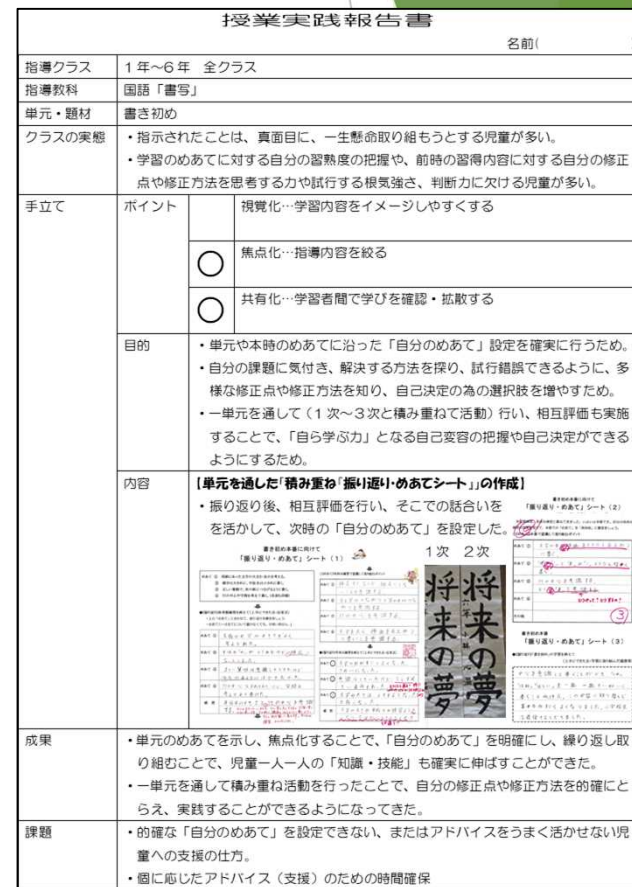 授業実践報告書
名前(
指導クラス 1年～6年 全クラス
指導教科 国語「書写」
単元・題材 書き初め
クラスの実態 ・指示されたことは、真面目に、一生懸命取り組もうとする児童が多い。
・学習のめあてに対する自分の習熟度の把握や、前時の習得内容に対する自分の修正
点や修正方法を思考する力や試行する根気強さ、判断力に欠ける児童が多い。
手立て ポイント 視覚化…学習内容をイメージしやすくする
○ 焦点化…指導内容を絞る
○ 共有化…学習者間で学びを確認・拡散する
目的 ・単元や本時のめあてに沿った「自分のめあて」設定を確実に行うため。
・自分の課題に気付き、解決する方法を探り、試行錯誤できるように、多
様な修正点や修正方法を知り、自己決定の為の選択肢を増やすため。
・一単元を通して（1次～3次と積み重ねて活動）行い、相互評価も実施
することで、「自ら学ぶ力」となる自己変容の把握や自己決定ができる
ようにするため。
内容 【単元を通した「積み重ね「振り返り・めあてシート」」の作成】
・振り返り後、相互評価を行い、そこでの話合いを
を活かして、次時の「自分のめあて」を設定した。
書き初め本番に向けて
「振り返り・めあて」シート（1）
1次 2次
将来の夢
将来の夢
書き初め本番に向けて
「振り返り・めあて」シート（2）
書き初め本番
「振り返り・めあて」シート（3）
成果 ・単元のめあてを示し、焦点化することで、「自分のめあて」を明確にし、繰り返し取
り組むことで、児童一人一人の「知識・技能」も確実に伸ばすことができた。
・一単元を通して積み重ね活動を行ったことで、自分の修正点や修正方法を的確にと
らえ、実践することができるようになってきた。
課題 ・的確な「自分のめあて」を設定できない、またはアドバイスをうまく活かせない児
童への支援の仕方。
・個に応じたアドバイス（支援）のための時間確保